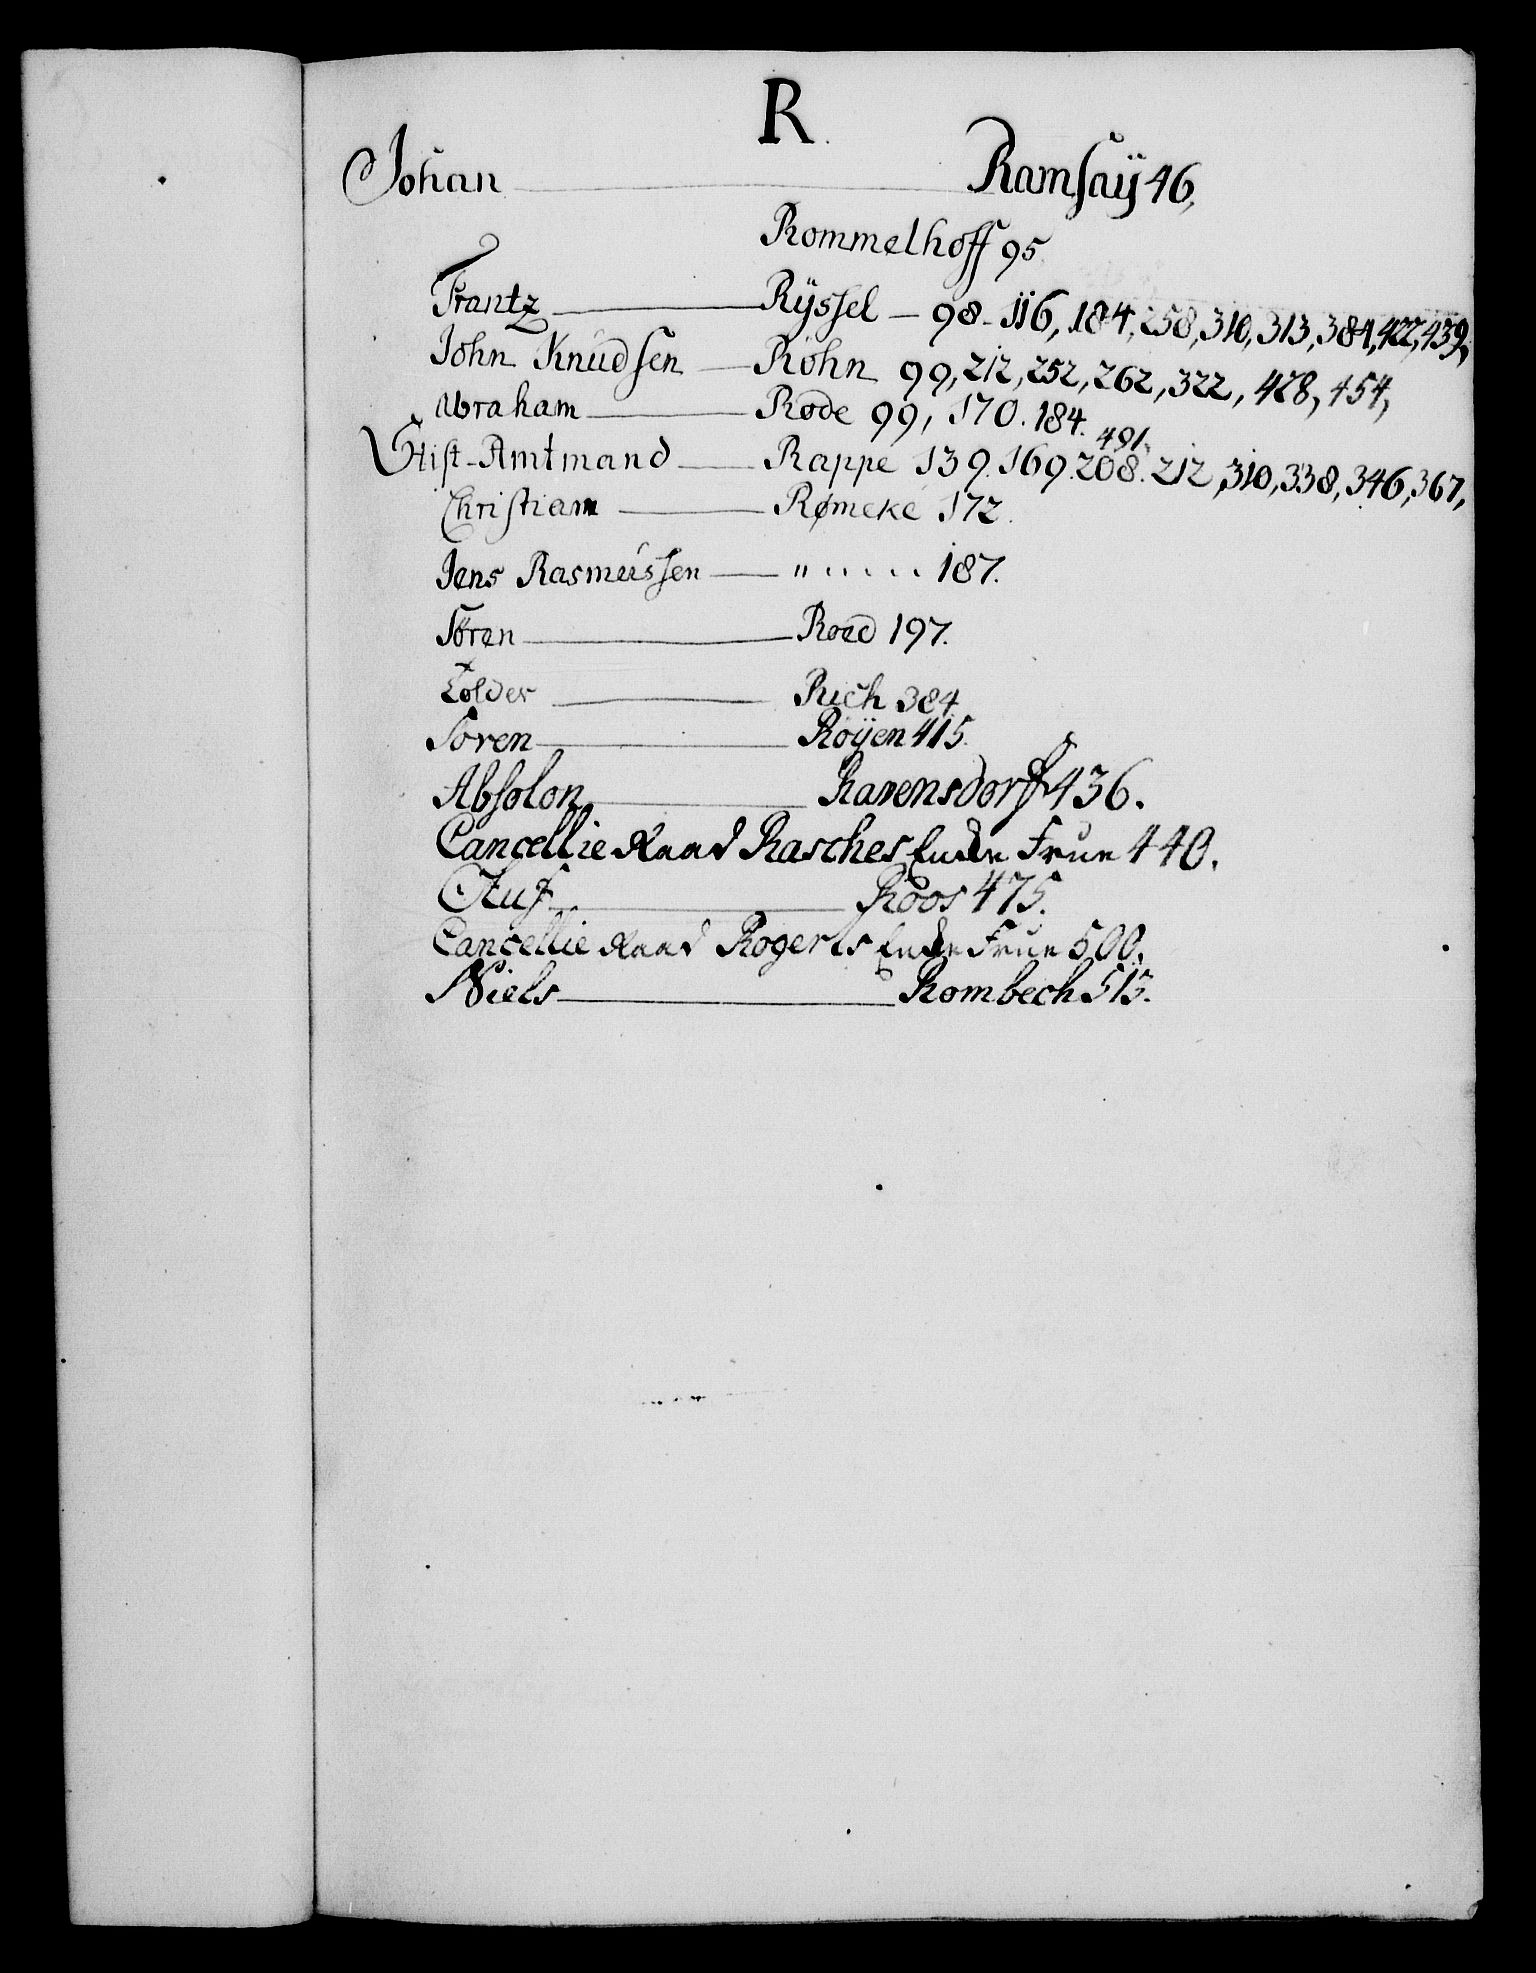 R.
Johan — Ramsaÿ 46,
Rommelhoff 95
Frantz — Rÿssel — 98. 116, 184, 258, 310, 313, 384, 422, 439,
John Knudsen — Röhn 99, 212, 252, 262, 322, 428, 454,
Abraham — Rode 99, 170. 184.
491.
Stist-Amtmand — Rappe 139. 169. 208. 212, 310, 338, 346, 367,
Christian — Rømeke 172.
Jens Rasmussen — " . . . . . 187.
Søren — Roed 197.
Rich 384
Soren — Röÿen 415.
Absolon — Ravensdorff 436.
Cancellie Raad Rasches Encke Frue 440.
Roos 475.
Cancellie Raad Rogerts Encke Frue 500.
Niels — Rombech 513.